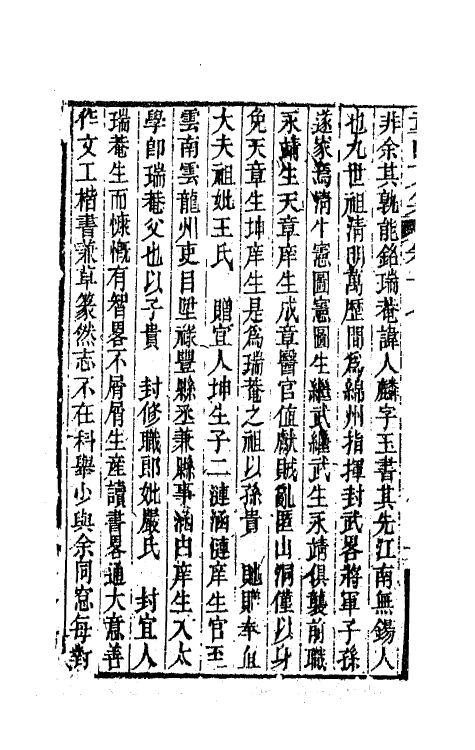 非余其孰能銘瑞菴諱人麟字玉書其先江南無錫人
也九世祖清明萬歷間爲綿州指揮封武畧將軍子孫
遂家焉清生憲圖憲圖生繼武繼武生永靖俱襲前職
永靖生天章庠生成章醫官值獻賊亂匿山洞僅以身
免天章生坤庠生是爲瑞菴之祖以孫貴 貤贈奉直
大夫祖妣王氏 贈宜人坤生子二漣涵漣庠生官至
雲南雲龍州吏目陞祿豐縣丞兼縣事涵由庠生入太
學卽瑞菴父也以子貴 封修職郎妣嚴氏 封宜人
瑞菴生而慷慨有智畧不屑屑生産讀書畧通大意善
作文工楷書兼草篆然志不在科舉少與余同窓每對